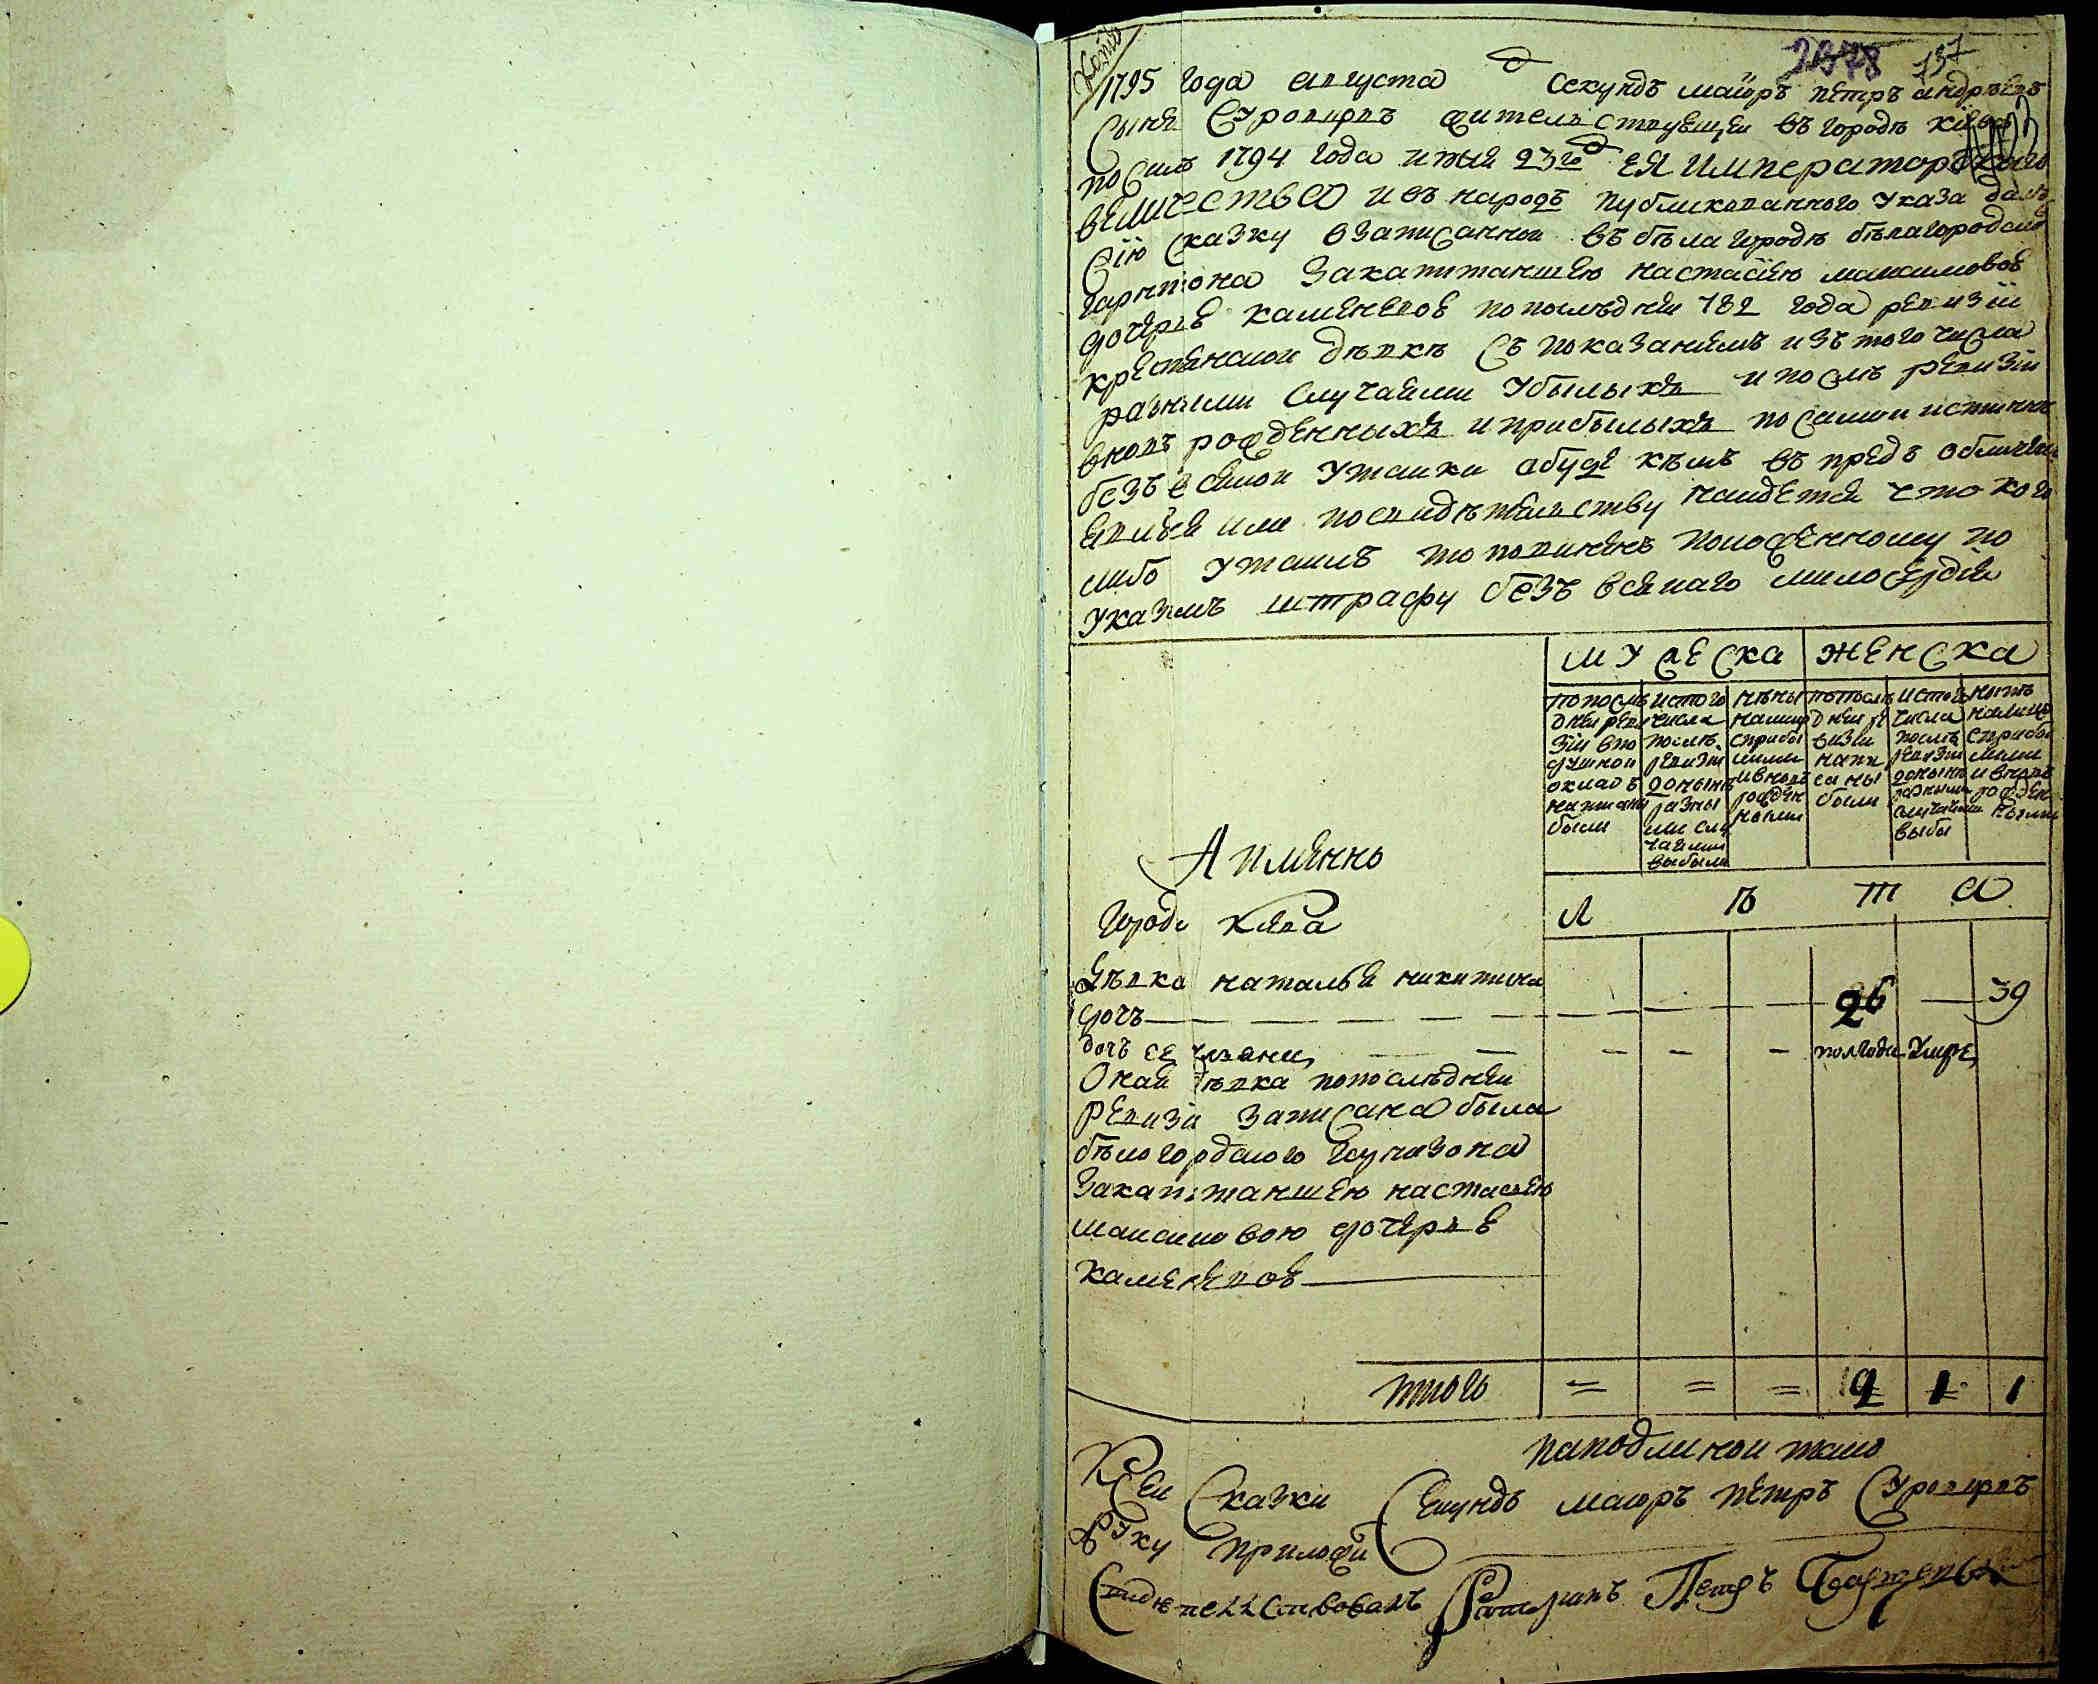 Копія
2378 737
1795 года августа Секундъ маіоръ петръ андрѣевъ
Сынъ Суровцовъ жительствуещеи въ городѣ кіевѣ
по силѣ 1794 года июня 23го ЕЯ Императорскаго
вѣличества и въ народъ публикованного указа далъ
Сію Сказку о записаннои въ бѣлагородѣ бѣлагородского
гарнизона за капитаншею настасіею максимовое
дочерье каменевое по последнеи 782 года ревизіи
крестянскои дѣвкѣ съ показаниемъ изъ того числа
разними случаеми убылыхъ и послѣ ревизіи
вновъ рожденныхъ и прибылыхъ по самои истиннѣ
безъ всякои утаики а буде кѣмъ въ предъ обличенъ
явлюся или по свидѣтельству наидется что кого
либо утаилъ то повиненъ положенному по
указамъ штрафу безъ всякаго милосердія
мужеска женска
по послѣ
днеи реви
зіи в по
душнои
окладъ
написаны
были
ис того
числа
послѣ
ревизіи
донынѣ
разны
ми слу
чаями
выбыли
нынѣ
налицо
с прибы
лими
и вновъ
рожден
ными
по послѣ
днеи ре
визіи
напи
саны
были
ис того
числа
послѣ
ревизіи
донынѣ
разными
случаями
выбы
нынѣ
налицо
с прибы
лими
и вновъ
рожден
ными
А имянно
Л ѣ т а
Города Киева
Дѣвка наталья никитина
дочъ 26 39
дочъ ее полгода умре
Оная дѣвка по последнеи
ревизіи записана была
бѣлогородского гарнизона
за капитаншею настасіею
максимовою дочерье
каменевое
итого = = = 2 1 1
На подлинои тако
К Сеи Сказки Секундъ маіоръ петръ Суровцовъ
руку приложи
Свидѣтельствовалъ Ратманъ Петръ